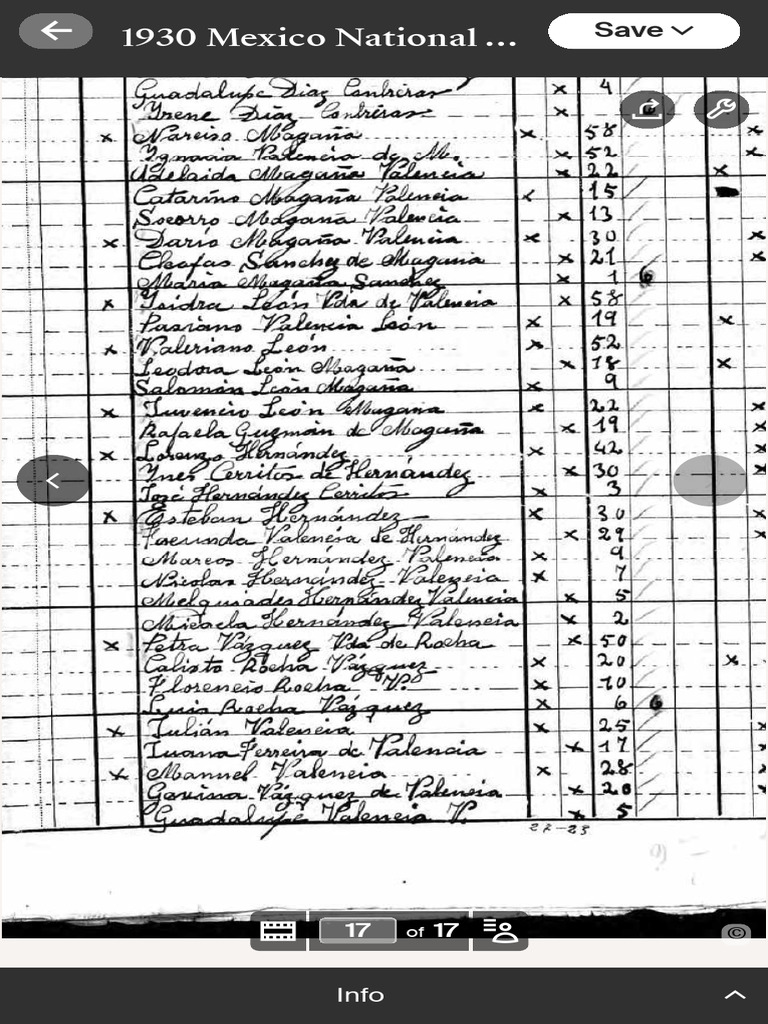 1930 Mexico National ...
Save
Guadalupe Díaz Contreras x 4
Yrene Díaz Contreras x
x Narciso Magaña x 58 x
Ygnacia Valencia de M. x 52 x
Adelaida Magaña Valencia x 22 x
Catarino Magaña Valencia x 15
Socorro Magaña Valencia x 13
x Darío Magaña Valencia x 30 x
Cleofas Sanchez de Magaña x 21 x
María Magaña Sanchez x 1 6
x Ysidra León Vda de Valencia x 58
Pasiano Valencia León x 19 x
x Valeriano León x 52
Teodora León Magaña x 18 x
Salomón León Magaña x 9
x Juvencio León Magaña x 22 x
Rafaela Guzmán de Magaña x 19 x
x Lorenzo Hernández x 42 x
Ynes Cerritos de Hernández x 30 x
José Hernández Cerritos x 3
x Esteban Hernández x 30 x
Facunda Valencia de Hernández x 29 x
Marcos Hernández Valencia x 9
Nicolas Hernández Valencia x 7
Melquiades Hernández Valencia x 5
Micaela Hernández Valencia x 2
x Petra Vázquez Vda de Rocha x 50
Calisto Rocha Vázquez x 20 x
Florencio Rocha V. x 10
Luis Rocha Vázquez x 6 6
x Julián Valencia x 25 x
Juana Ferreira de Valencia x 17 x
x Manuel Valencia x 28 x
Vázquez de Valencia x 20 x
Guadalupe Valencia V. x 5
22-23
17 of 17
©
Info